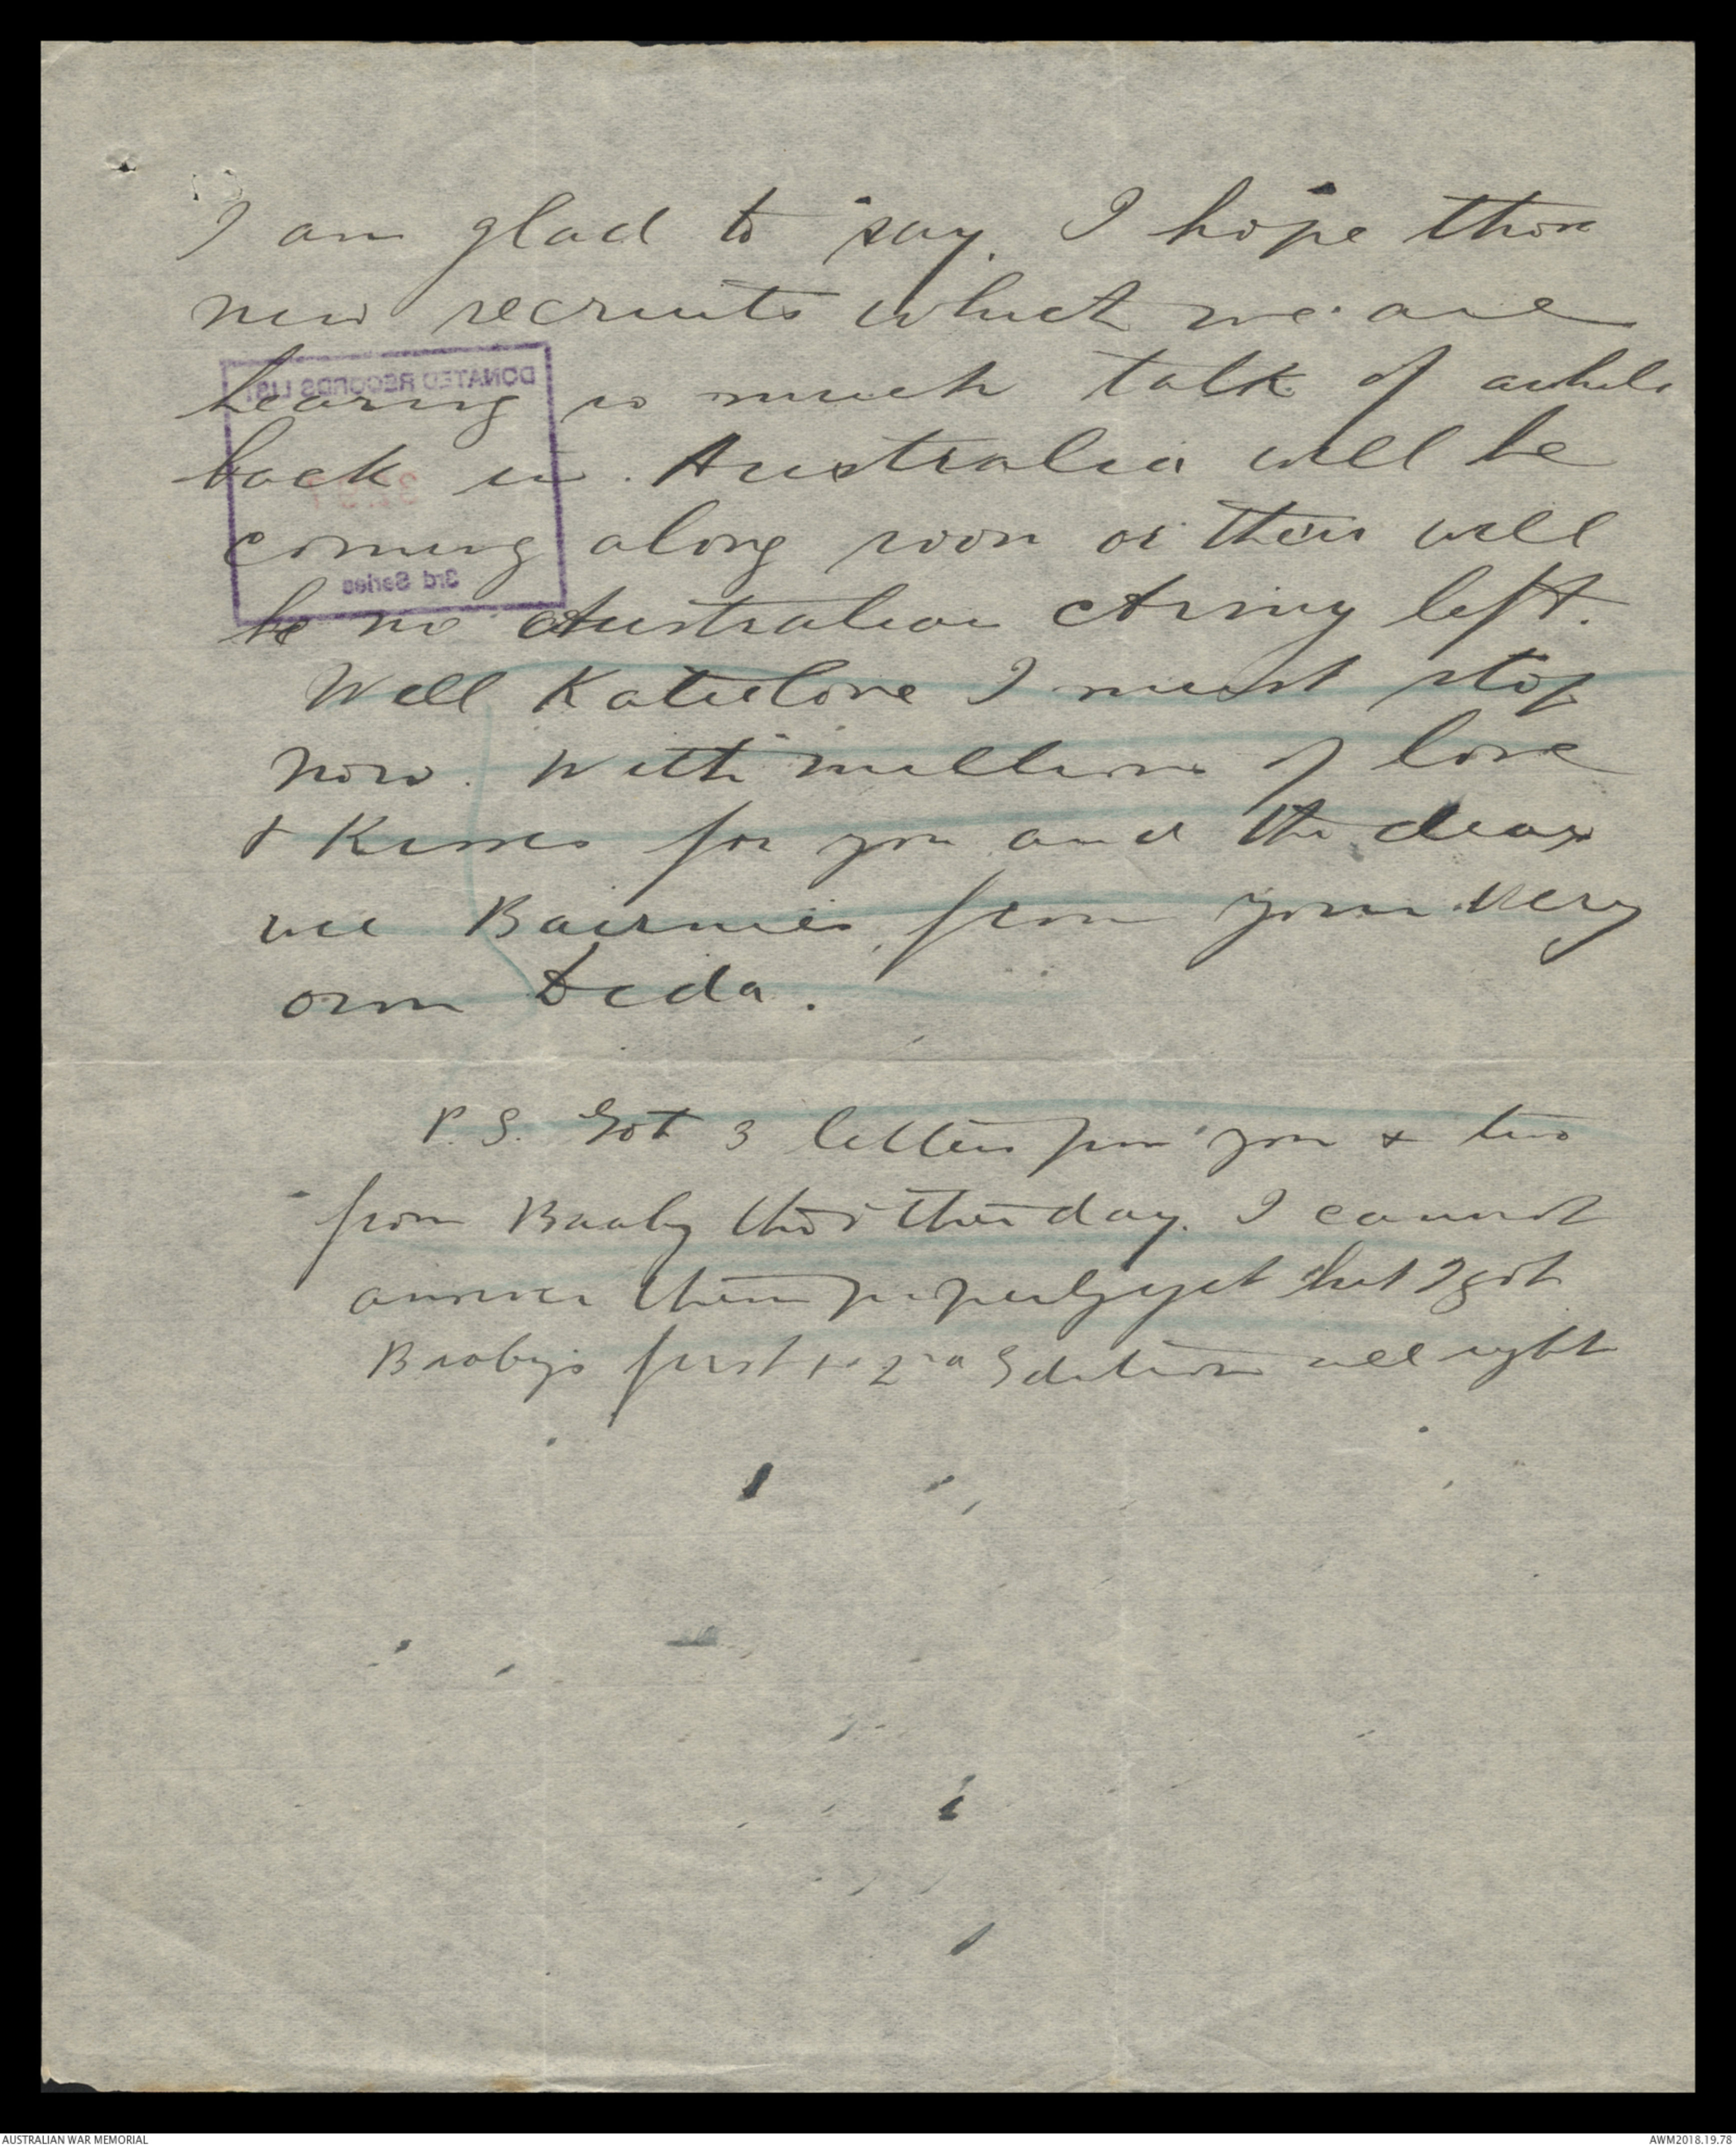 I am glad to say. I hope those
new recruits which we are
hearing so much talk of awhile
back in Australia will be
coming along soon or there will
be no Australian Army left.
Well Katielove I must stop
now. With millions of love
& Kisses for you and the dear
wee Bairnies from your very
own Dida.
P.S. Got 3 letters from you & two
from Baaby the other day. I cannot
answer them properly yet but I got
Baabys first & 2nd Edition all right
DONATED RECORDS LIST
3rd Series
AUSTRALIAN WAR MEMORIAL
AWM2018.19.78